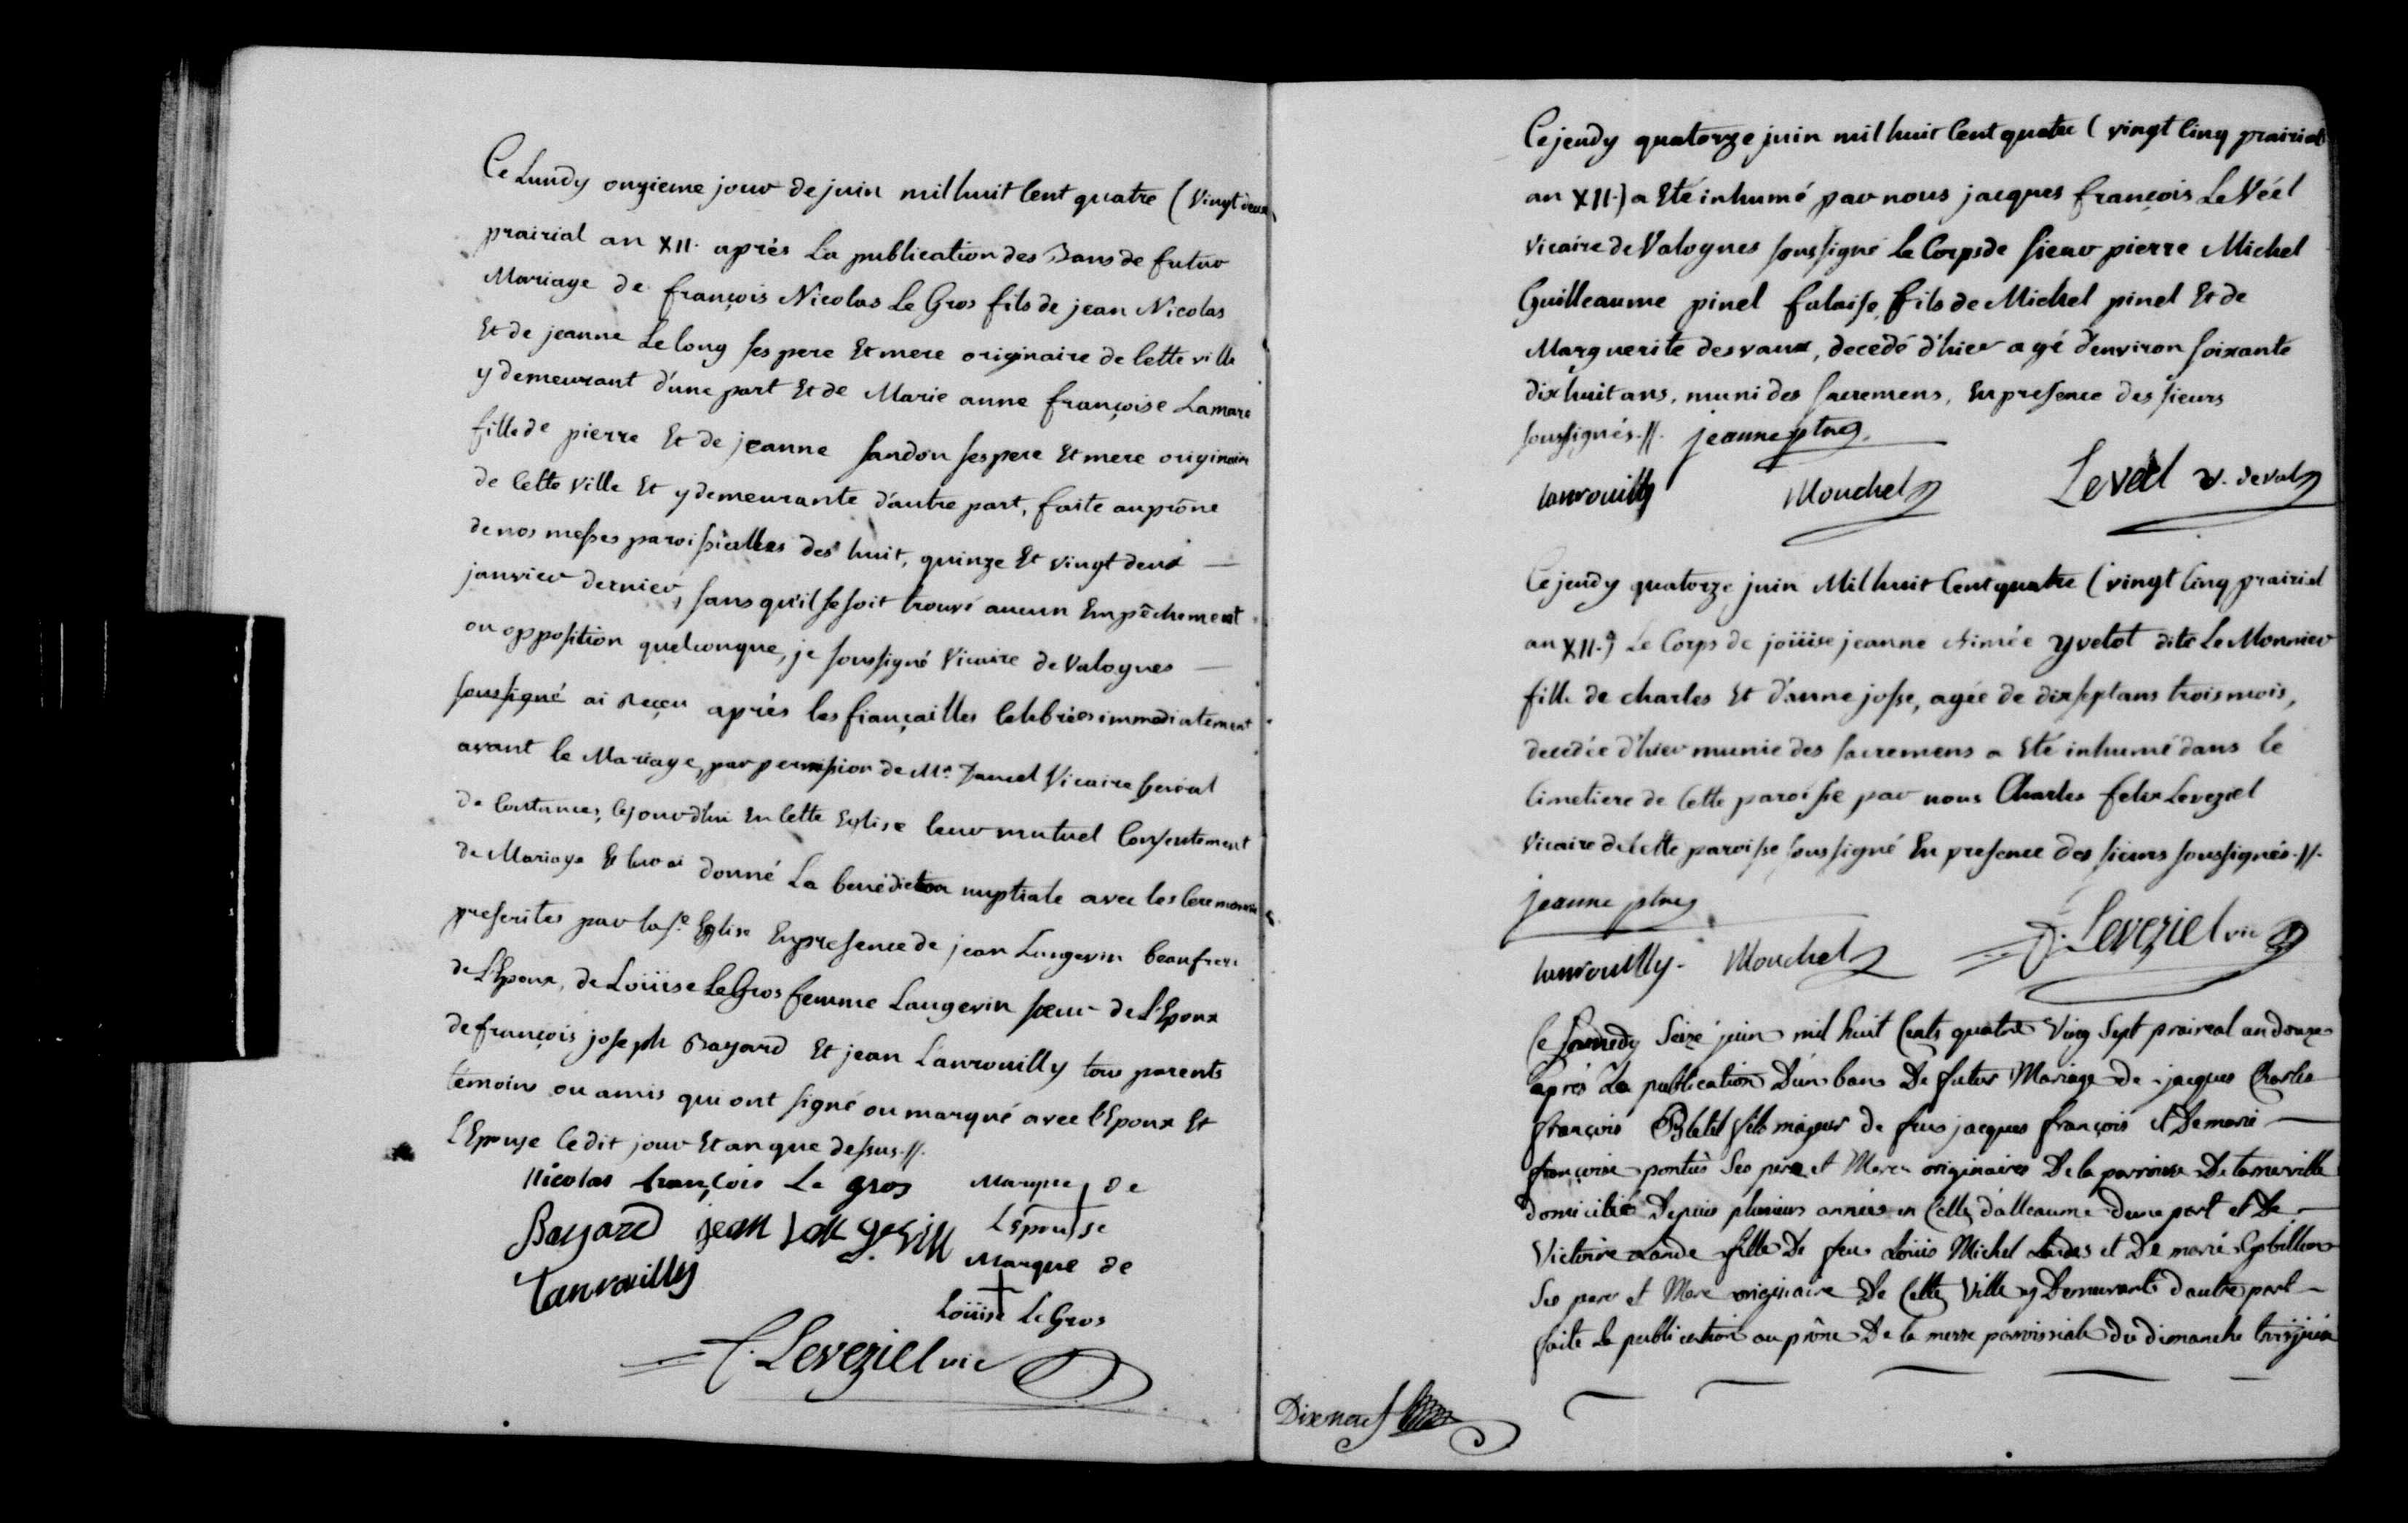 Ce Lundy onzieme jour de juin mil huit Cent quatre ( Vingt deux
prairial an XII. aprés La publication des Bans de futur
Mariage de françois Nicolas Le Gros fils de jean Nicolas
Et de jeanne Le long ses pere Et mere originaire de Cette ville
y demeurant d'une part Et de Marie anne françoise Lamare
fille de pierre Et de jeanne Sandon ses pere Et mere originaire
de Cette ville Et y demeurante d'autre part, faite au prône
de nos messes paroissialles des huit, quinze Et vingt deux
janvier dernier, sans qu'il se soit trouvé aucun Empêchement
ou opposition quelconque, je soussigné Vicaire de Valognes
soussigné ai Reçu aprés les fiançailles Celebrées immediatement
avant le Mariage, par permission de Mr. Vicaire General
de Coutances, Cejourd'hui En Cette Eglise leur mutuel Consentement
de Mariage Et leur ai donné La benédiction nuptiale avec les Ceremonies
prescrites par la Ste. Eglise En presence de jean Langevin beaufrere
de L'Epoux, de Loüise Le Gros femme Langevin sœur de L'Epoux
de françois joseph Bazard Et jean Lanrouilly tous parents
témoins ou amis qui ont signé ou marqué avec l'Epoux Et
L'Epouse Cedit jour Et an que dessus.//.
Nicolas françois Le gros Marque de
Bazard jean Lan ge vin L'Epouse
Lanrouilly Marque de
Loüise Le Gros
C. Leveziel vic
Ce jeudy quatorze juin mil huit Cent quatre ( vingt Cinq prairial
an XII.) a Eté inhumé par nous jacques françois Le Véél
Vicaire de Valognes soussigné le Corps de Sieur pierre Michel
Guilleaume pinel falaise, fils de Michel pinel Et de
Marguerite desvaux, decedé d'hier agé d'environ soixante
dix huit ans, muni des sacremens, En presence des sieurs
soussignés.//. jeanne ptre
Lanrouilly Mouchel Leveél v. de Val
Ce jeudy quatorze juin Mil huit Cent quatre ( vingt Cinq prairial
an XII.) Le Corps de joüise jeanne Aimée yvetot dite Le Monnier
fille de charles Et d'anne josse, agée de dix sept ans trois mois,
decedée d'hier munie des sacremens a Eté inhumé dans le
Cimetiere de Cette paroisse par nous Charles felix Leveziel
Vicaire de Cette paroisse soussigné En presence des sieurs soussignés.//.
jeanne ptre
Lanrouilly. Mouchel C. Leveziel vic
Ce Samedy Seize juin mil huit Cents quatre Ving Sept praireal an douze
aprés La publication D'un bans De futur Mariage de jacques Charles
françois Bletel fils majeur de feus jacques françois et De marie
françoise pontus Ses pere et Mere originaires De la parroisse De tamerville
domicilié Depuis plusieurs années en Celle d'alleaume d'une part et De
Victoire Lande fille De feu Loüis Michel Landes et De marie Gobillon
Ses pere et Mere originaire De Cette Ville y Demeurante d'autre part
faite La publication au prône De la messe parroissiale du dimanche trois juin
Dixneuf